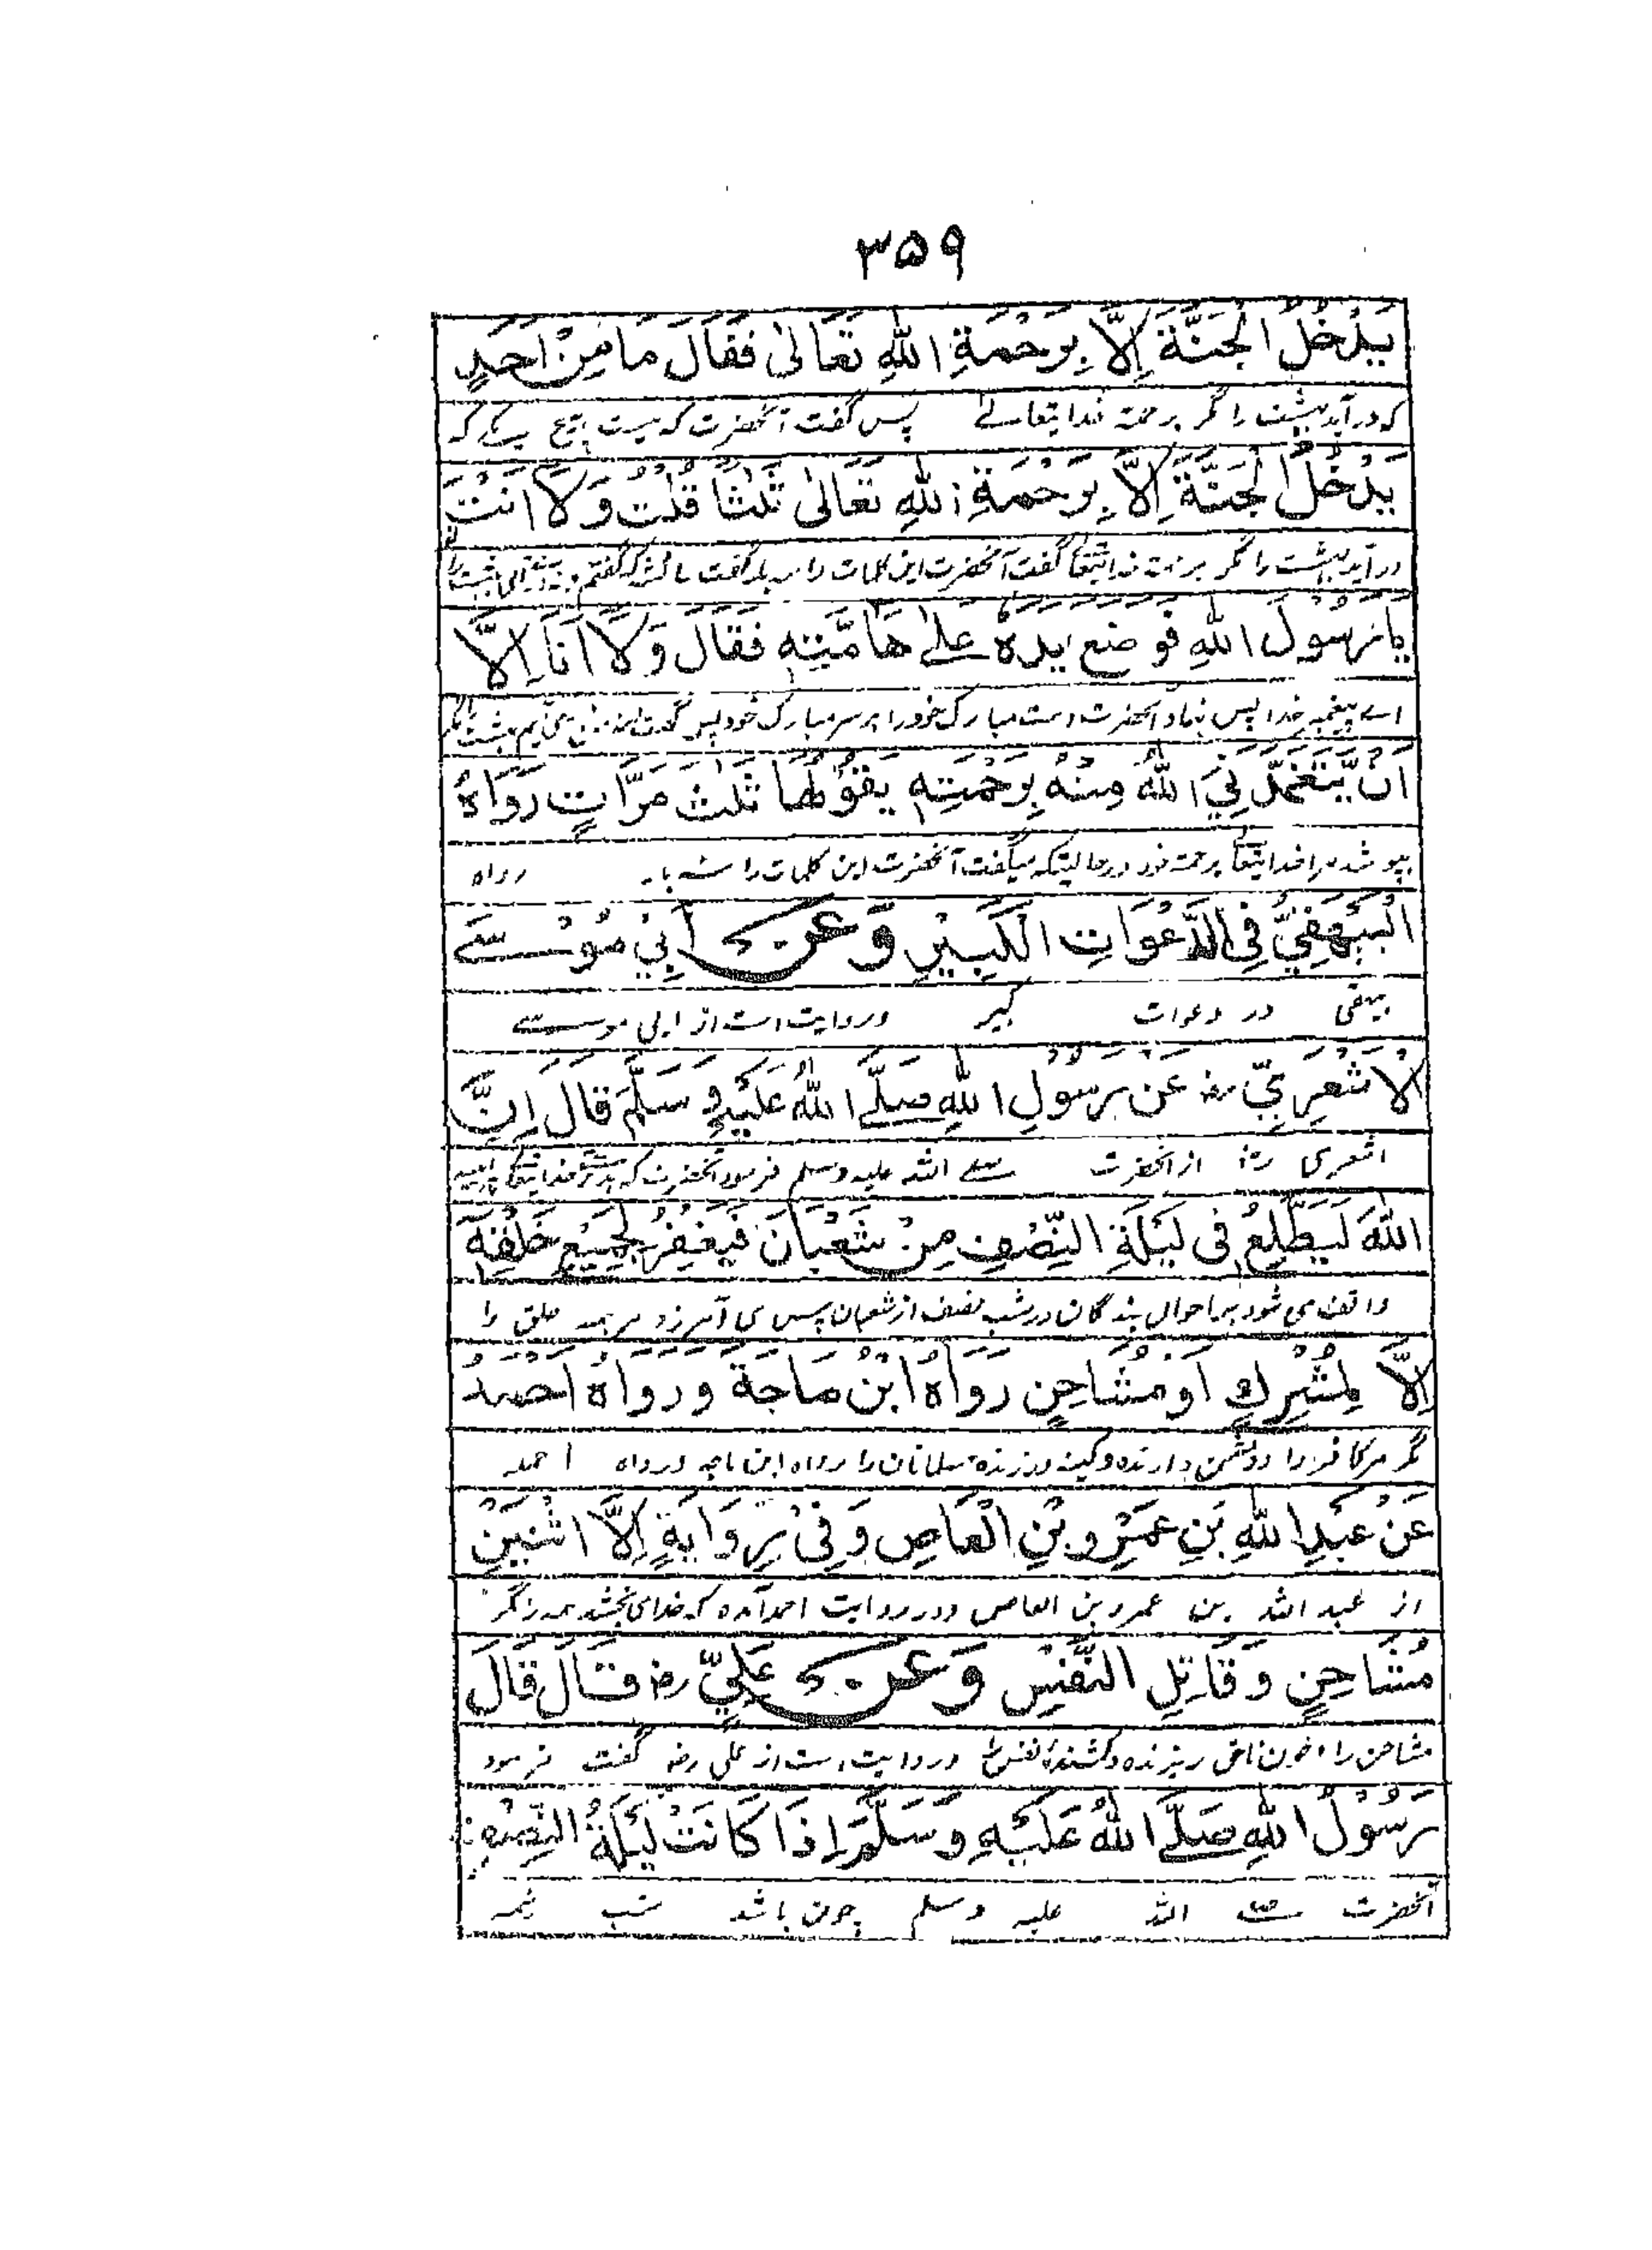 ۳۵۹
يَدْخُلُ الْجَنَّةَ إِلَّا بِرَحْمَةِ اللهِ تَعَالٰى فَقَالَ مَا مِنْ اَحَدٍ
که درآید بهشت را مگر برحمت خدایتعالے پس گفت آنحضرت که نیست هیچ یکے که
يَدْخُلُ الْجَنَّةَ اِلَّا بِرَحْمَةِ اللهِ تَعَالٰى ثَلٰثًا قُلْتُ وَلَا اَنْتَ
درآید بهشت را مگر برحمت خدایتعا گفت آنحضرت این کلمات را سه بار گفت عائشه که گفتم
يَا رَسُوْلَ اللهِ فَوَضَعَ يَدَهٗ عَلٰى هَامَّتِهٖ فَقَالَ وَلَا اَنَا اِلَّا
اے پیغمبر خدا پس نهاد آنحضرت دست مبارک خود را بر سر مبارک خود پس گفت
اَنْ يَّتَغَمَّدَنِيَ اللهُ مِنْهُ بِرَحْمَتِهٖ يَقُوْلُهَا ثَلٰثَ مَرَّاتٍ رَوَاهُ
بپوشد مرا خدایتعا برحمت خود درحالیکه میگفت آنحضرت این کلمات را سه بار رواه
الْبَيْهَقِيُّ فِي الدَّعَوَاتِ الْكَبِيْرِ وَعَنْ اَبِيْ مُوْسٰے
بیهقی در دعوات کبیر و روایت است از ابی موسے
الْاَشْعَرِيِّ رضـ عَنْ رَسُوْلِ اللهِ صَلَّے اللهُ عَلَيْهِ وَسَلَّمَ قَالَ اِنَّ
اشعری رضـ از آنحضرت صلے الله علیه وسلم فرمود آنحضرت که
اللهَ لَيَطَّلِعُ فِيْ لَيْلَةِ النِّصْفِ مِنْ شَعْبَانَ فَيَغْفِرُ لِجَمِيْعِ خَلْقِهٖ
واقف می شود بر احوال بندگان در شب نصف از شعبان پس می آمرزد مر همه خلق را
اِلَّا لِمُشْرِكٍ اَوْ مُشَاحِنٍ رَوَاهُ ابْنُ مَاجَةَ وَرَوَاهُ اَحْمَدُ
مگر مر کافر را و دشمن دارنده و کینه ورزنده مسلمانان را رواه ابن ماجه و رواه احمد
عَنْ عَبْدِ اللهِ بْنِ عَمْرِو بْنِ الْعَاصِ وَفِيْ رِوَايَةٍ اِلَّا اثْنَيْنِ
از عبد الله بن عمرو بن العاص و در روایت احمد آمده که خدا می بخشد همه را مگر
مُشَاحِنٍ وَقَاتِلِ النَّفْسِ وَعَنْ عَلِيٍّ رضـ قَالَ قَالَ
مشاحن را و خون ناحق ریزنده و کشنده نفس را و روایت است از علی رضـ گفت فرمود
رَسُوْلُ اللهِ صَلَّے اللهُ عَلَيْهِ وَسَلَّمَ اِذَا كَانَتْ لَيْلَةُ النِّصْفِ
آنحضرت صلے الله علیه وسلم چون باشد شب نیمه